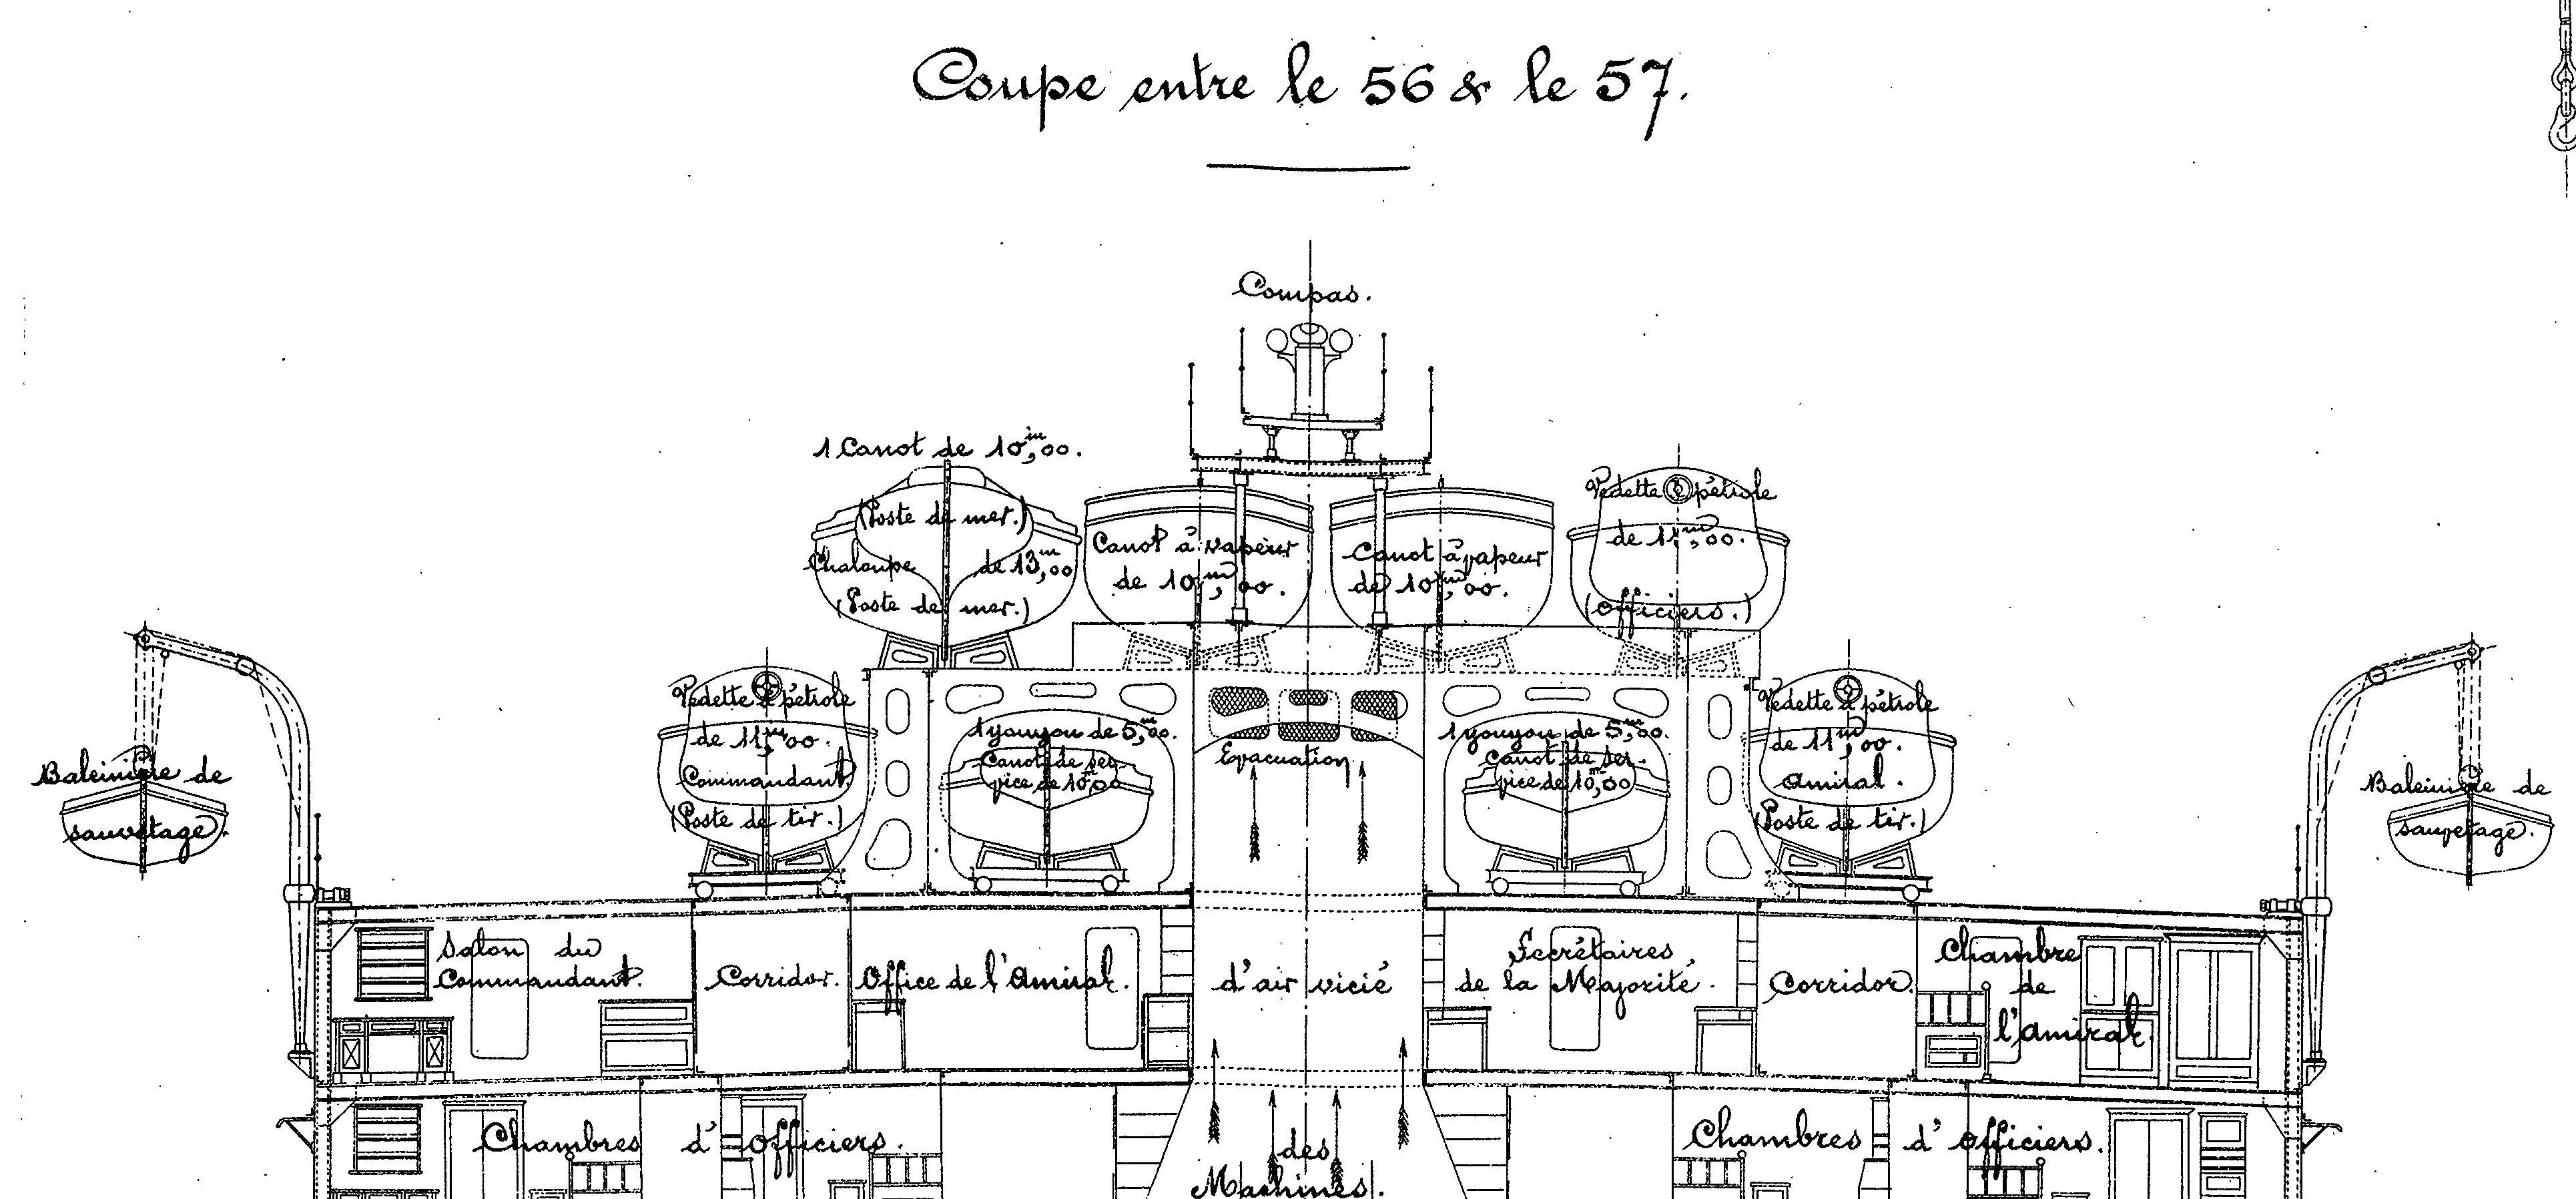 Coupe entre le 56 & le 57.
Compas.
1 Canot de 10m,00.
(Poste de mer.)
Chaloupe de 13m,00
(Poste de mer.)
Canot à vapeur
de 10m,00.
Canot à vapeur
de 10m,00.
Vedette à pétrole
de 11m,00.
(officiers.)
Baleinière de
sauvetage.
Vedette à pétrole
de 11m,00.
Commandant.
(Poste de tir.)
1 youyou de 5m,00.
Canot de ser-
vice de 10m,00
Evacuation
1 youyou de 5m,00.
Canot de ser-
vice de 10m,00
Vedette à pétrole
de 11m,00.
Amiral.
(Poste de tir.)
Baleinière de
sauvetage.
Salon du
Commandant.
Corridor.
Office de l'Amiral.
d'air vicié
Secrétaires
de la Majorité.
Corridor.
Chambre
de
l'Amiral.
Chambres d'officiers.
des
Machines.
Chambres d'officiers.